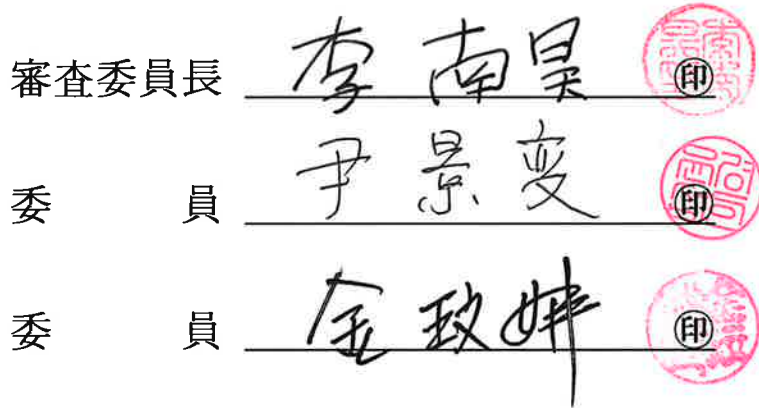 審査委員長 李南昊 印
委員 尹景変 印
委員 金玟 印